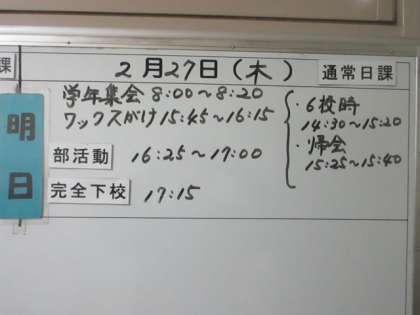 課
2月27日(木) 通常日課
明日
学年集会 8:00~8:20
ワックスがけ 15:45~16:15
・6校時
14:30~15:20
・帰会
15:25~15:40
部活動 16:25~17:00
完全下校 17:15